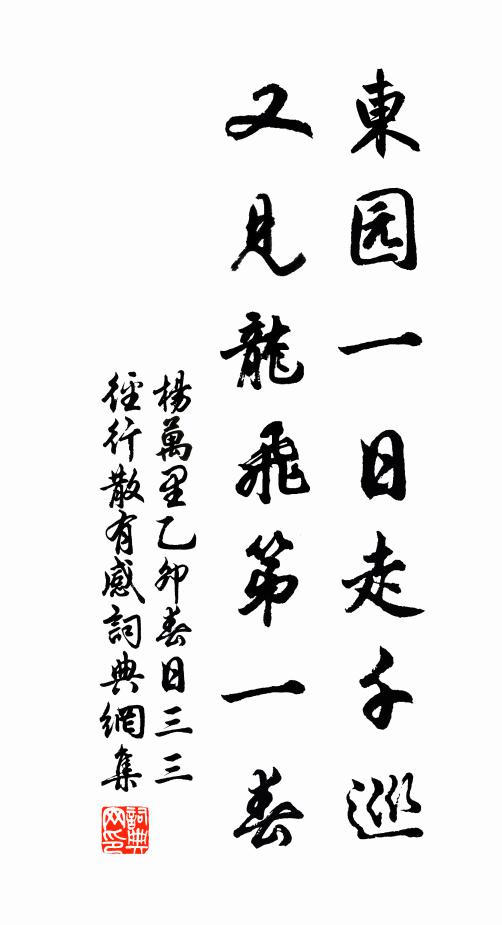 東园一日走千巡
又見龍飛第一春
楊萬里乙卯春日三三
徑行散有感詞典網集
詞典網印